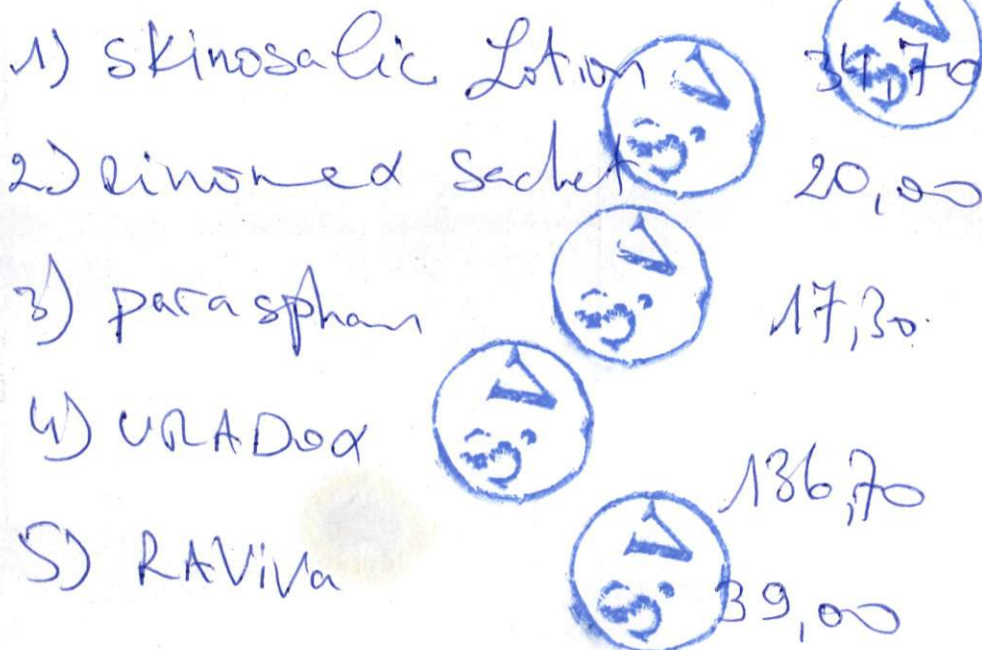 1) Skinosalic Lotion S.V 34,70 S.V
2) Rinomex Sachet 20,00
3) paraspham S.V 17,30
4) URADox S.V 136,70
5) RAViVa S.V 39,00